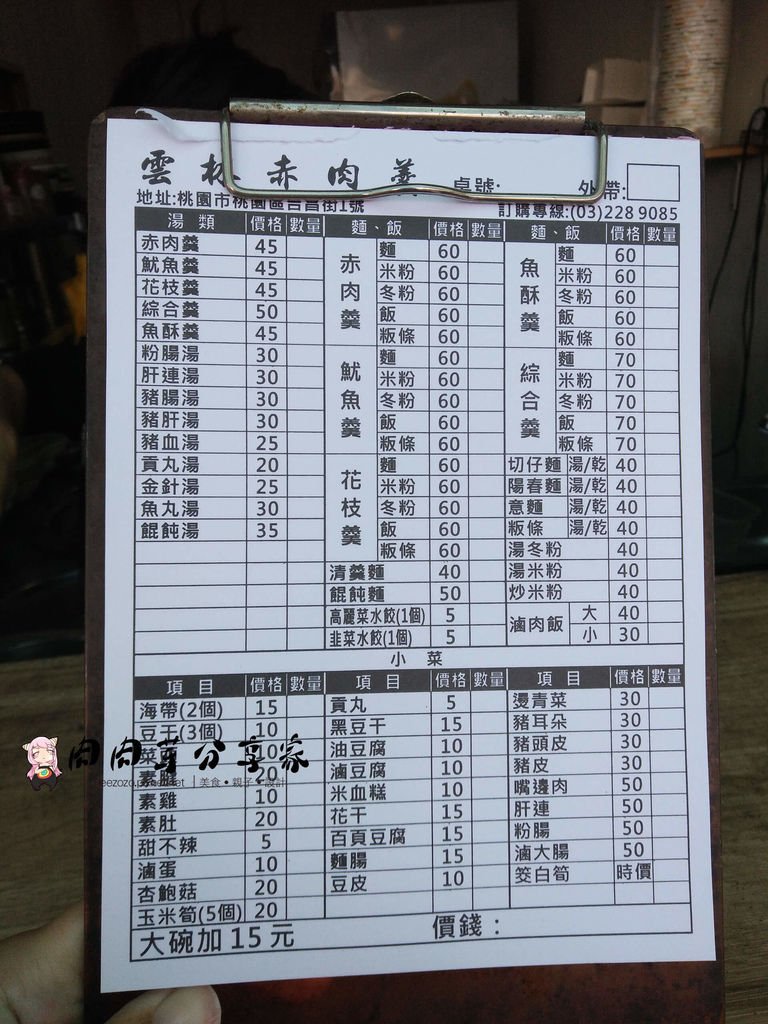 雲林赤肉羹 桌號: 外帶:
地址:桃園市桃園區合昌街1號 訂購專線:(03)228 9085
湯 類 價格 數量 麵、飯 價格 數量 麵、飯 價格 數量
赤肉羹 45
魷魚羹 45
花枝羹 45
綜合羹 50
魚酥羹 45
粉腸湯 30
肝連湯 30
豬腸湯 30
豬肝湯 30
豬血湯 25
貢丸湯 20
金針湯 25
魚丸湯 30
餛飩湯 35
赤肉羹
麵 60
米粉 60
冬粉 60
飯 60
粄條 60
魷魚羹
麵 60
米粉 60
冬粉 60
飯 60
粄條 60
花枝羹
麵 60
米粉 60
冬粉 60
飯 60
粄條 60
清羹麵 40
餛飩麵 50
高麗菜水餃(1個) 5
韭菜水餃(1個) 5
魚酥羹
麵 60
米粉 60
冬粉 60
飯 60
粄條 60
綜合羹
麵 70
米粉 70
冬粉 70
飯 70
粄條 70
切仔麵 湯/乾 40
陽春麵 湯/乾 40
意麵 湯/乾 40
粄條 湯/乾 40
湯冬粉 40
湯米粉 40
炒米粉 40
滷肉飯 大 40
小 30
小 菜
項 目 價格 數量 項 目 價格 數量 項 目 價格 數量
海帶(2個) 15
豆干(3個) 10
菜 10
素 20
素雞 10
素肚 20
甜不辣 5
滷蛋 10
杏鮑菇 20
玉米筍(5個) 20
貢丸 5
黑豆干 15
油豆腐 10
滷豆腐 10
米血糕 10
花干 15
百頁豆腐 15
麵腸 15
豆皮 10
燙青菜 30
豬耳朵 30
豬頭皮 30
豬皮 30
嘴邊肉 50
肝連 50
粉腸 50
滷大腸 50
筊白筍 時價
大碗加 15 元 價錢：
肉肉享分享家
美食●親子●設計